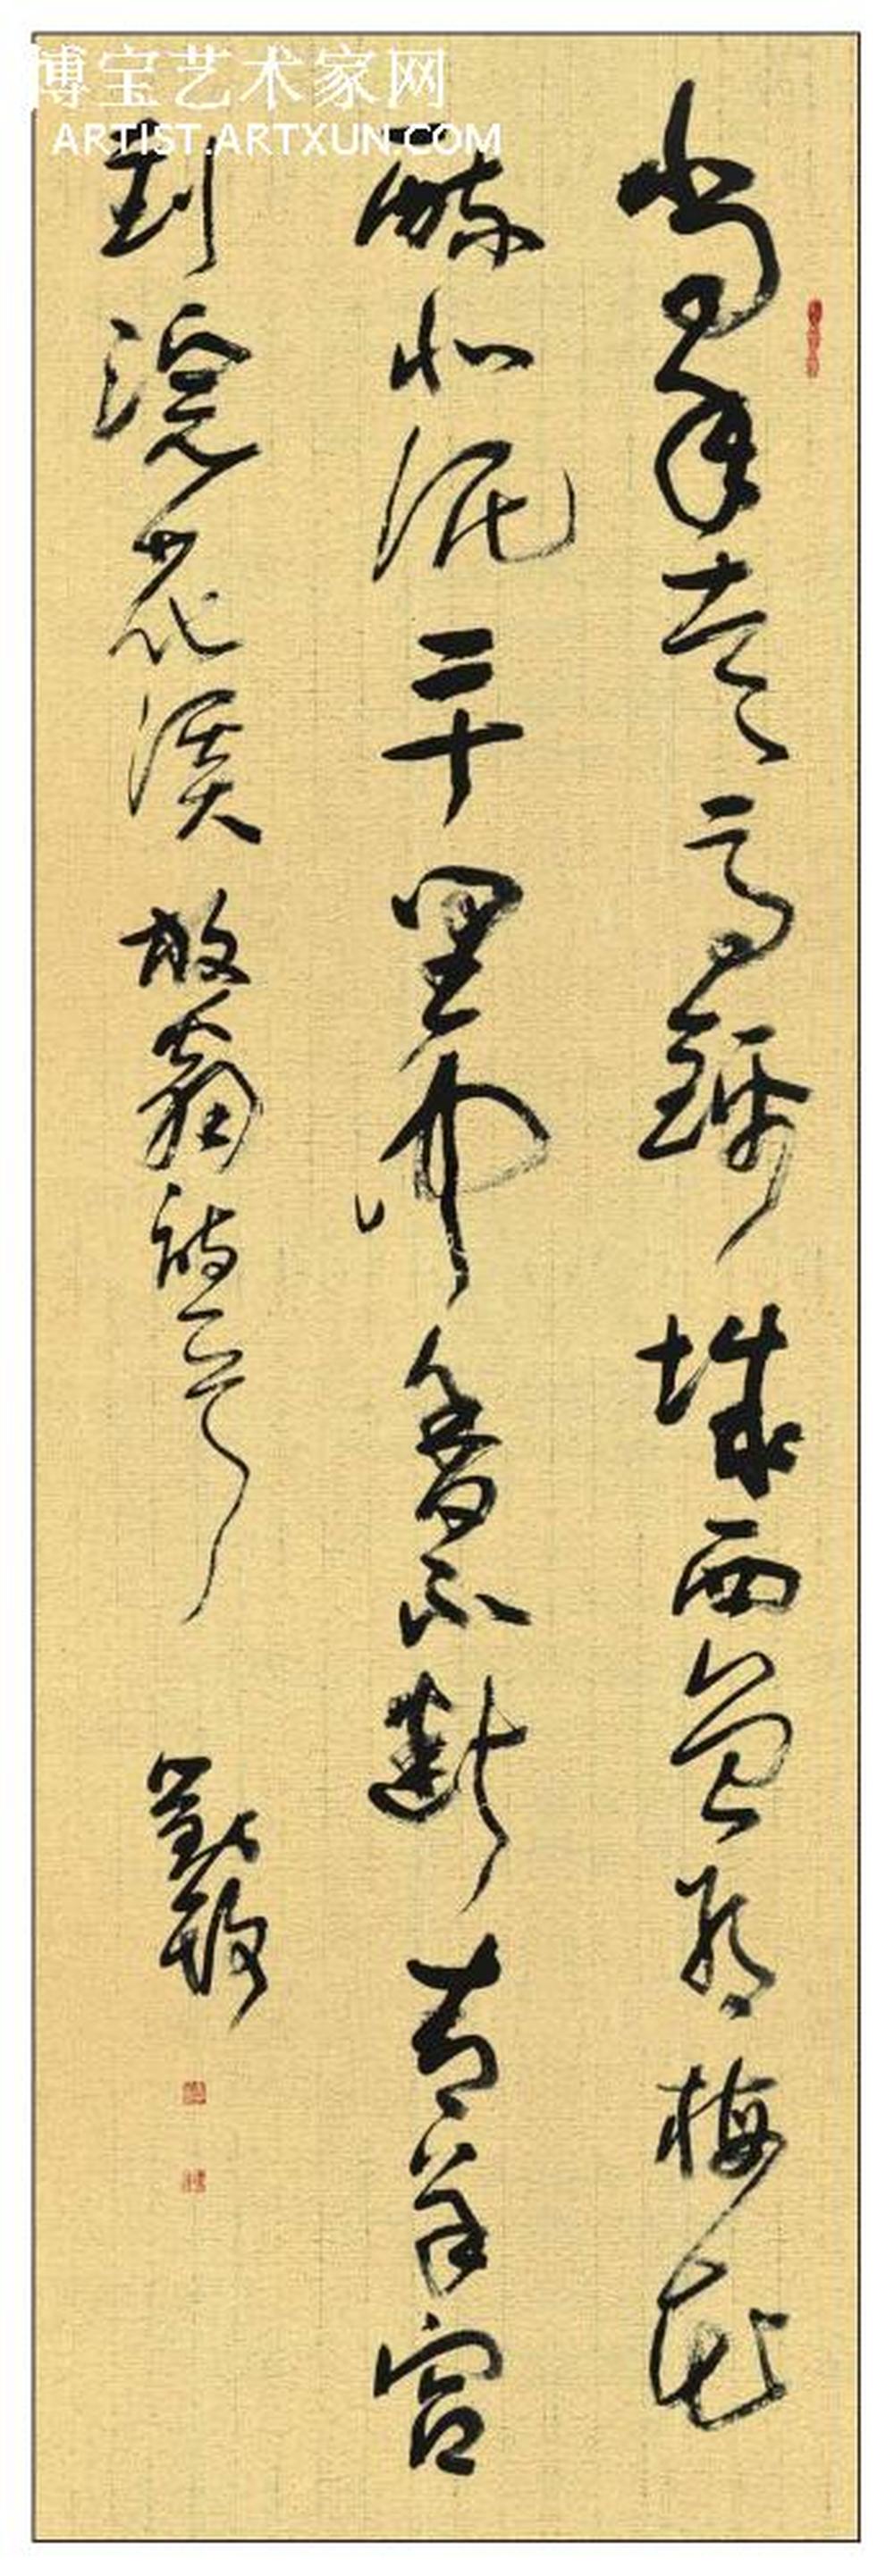 博宝艺术家网
ARTIST.ARTXUN.COM
當年走馬錦城西曾為梅花
醉似泥二十里中香不斷青羊宮
到浣花溪 放翁詩一首